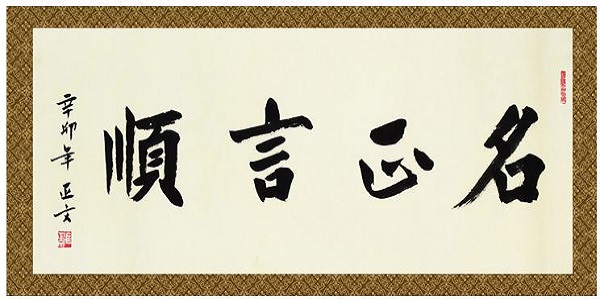 名正言順
辛卯年 正文